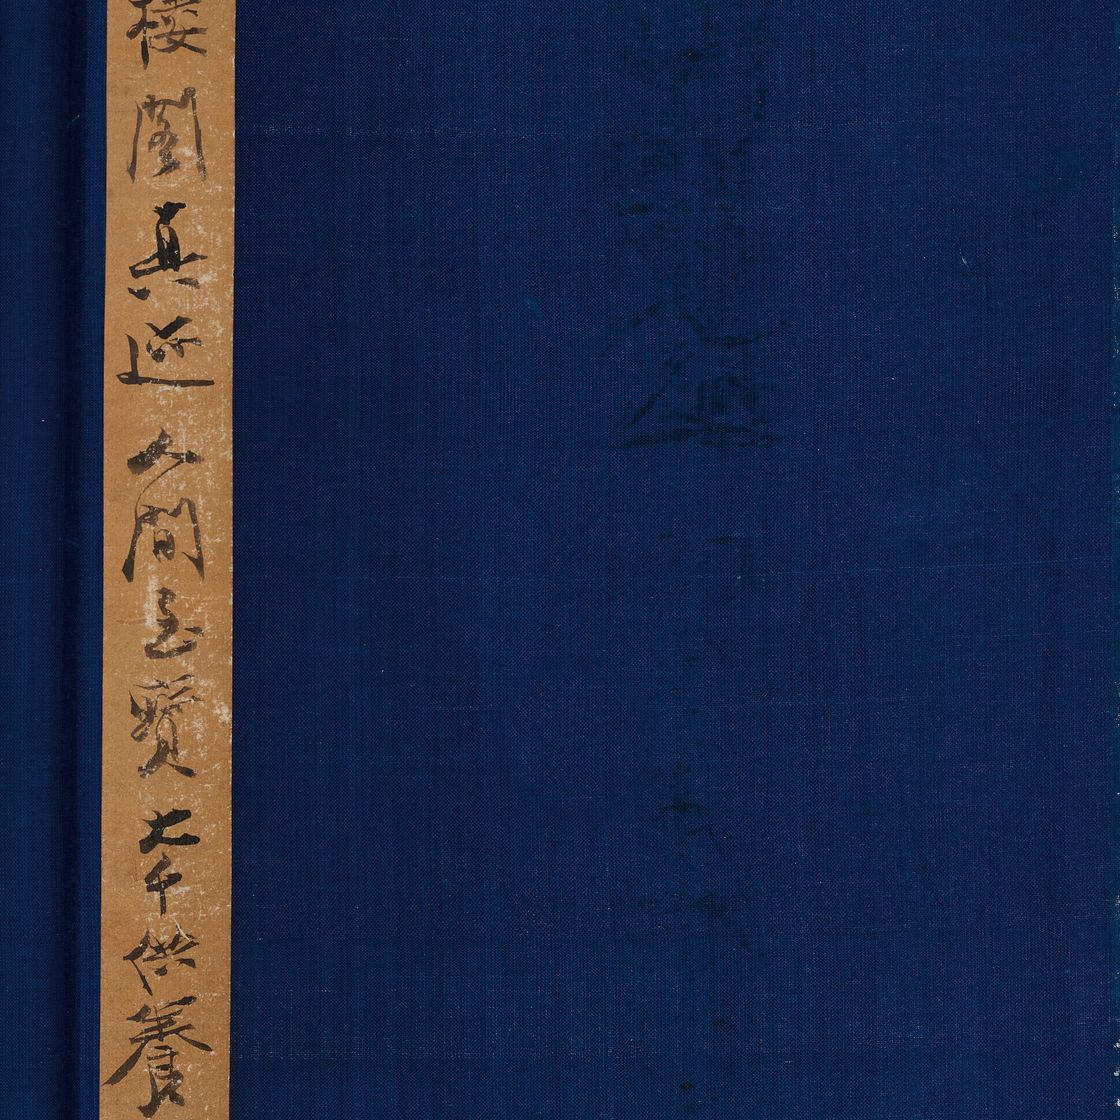 樓閣真迹人間至寶大千供養